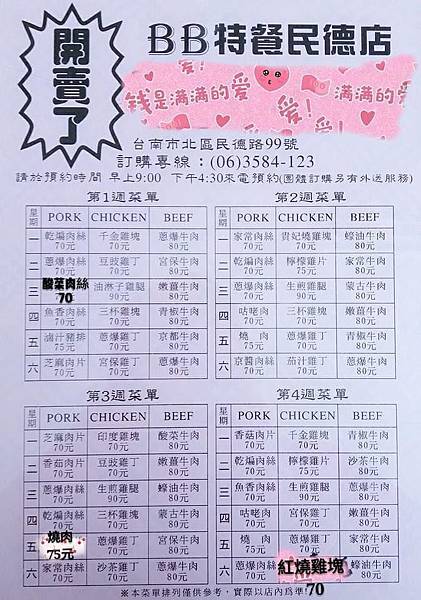 開賣了
BB特餐民德店
钱是满满的爱
爱!
爱!
台南市北區民德路99號
訂購專線：(06)3584-123
請於預約時間 早上9:00 下午4:30來電預約(團體訂購另有外送服務)
第1週菜單
星期 PORK CHICKEN BEEF
一 乾煸肉絲 70元 千金雞塊 70元 蔥爆牛肉 80元
二 蔥爆肉絲 70元 豆豉雞丁 70元 宮保牛肉 80元
三 酸菜肉絲 70 油淋子雞 90元 嫩薑牛肉 80元
四 魚香肉絲 70元 三杯雞丁 70元 青椒牛肉 80元
五 滷汁豬排 75元 蔥爆雞丁 70元 京都牛肉 80元
六 芝麻肉片 70元 宮保雞丁 70元 蔥爆牛肉 80元
第2週菜單
星期 PORK CHICKEN BEEF
一 家常肉絲 70元 貴妃燒雞塊 70元 蠔油牛肉 80元
二 乾煸肉絲 70元 檸檬雞片 75元 家常牛肉 80元
三 蔥爆肉絲 70元 生煎雞腿 90元 蒙古牛肉 80元
四 咕咾肉 70元 三杯雞丁 70元 嫩薑牛肉 80元
五 燒肉 75元 蔥爆雞丁 70元 青椒牛肉 80元
六 京醬肉絲 70元 茄汁雞丁 70元 蔥爆牛肉 80元
第3週菜單
星期 PORK CHICKEN BEEF
一 芝麻肉片 70元 印度雞塊 70元 酸菜牛肉 80元
二 香茹肉片 70元 豆豉雞丁 70元 嫩薑牛肉 80元
三 蔥爆肉絲 70元 生煎雞腿 90元 蠔油牛肉 80元
四 乾煸肉絲 70元 三杯雞塊 70元 蒙古牛肉 80元
五 燒肉 75元 宮保雞丁 70元 青椒牛肉 80元
六 家常肉絲 70元 沙茶雞丁 70元 蔥爆牛肉 80元
第4週菜單
星期 PORK CHICKEN BEEF
一 香菇肉片 70元 千金雞塊 70元 青椒牛肉 80元
二 乾煸肉絲 70元 檸檬雞片 75元 沙茶牛肉 80元
三 魚香肉絲 70元 生煎雞腿 90元 蔥爆牛肉 80元
四 咕咾肉 70元 宮保雞丁 70元 嫩薑牛肉 80元
五 燒肉 75元 蔥爆雞丁 70元 宮保牛肉 80元
六 蔥爆肉絲 70元 紅燒雞塊 70 蔥爆牛肉 80元
※本菜單排列僅供參考，實際以店內爲準!